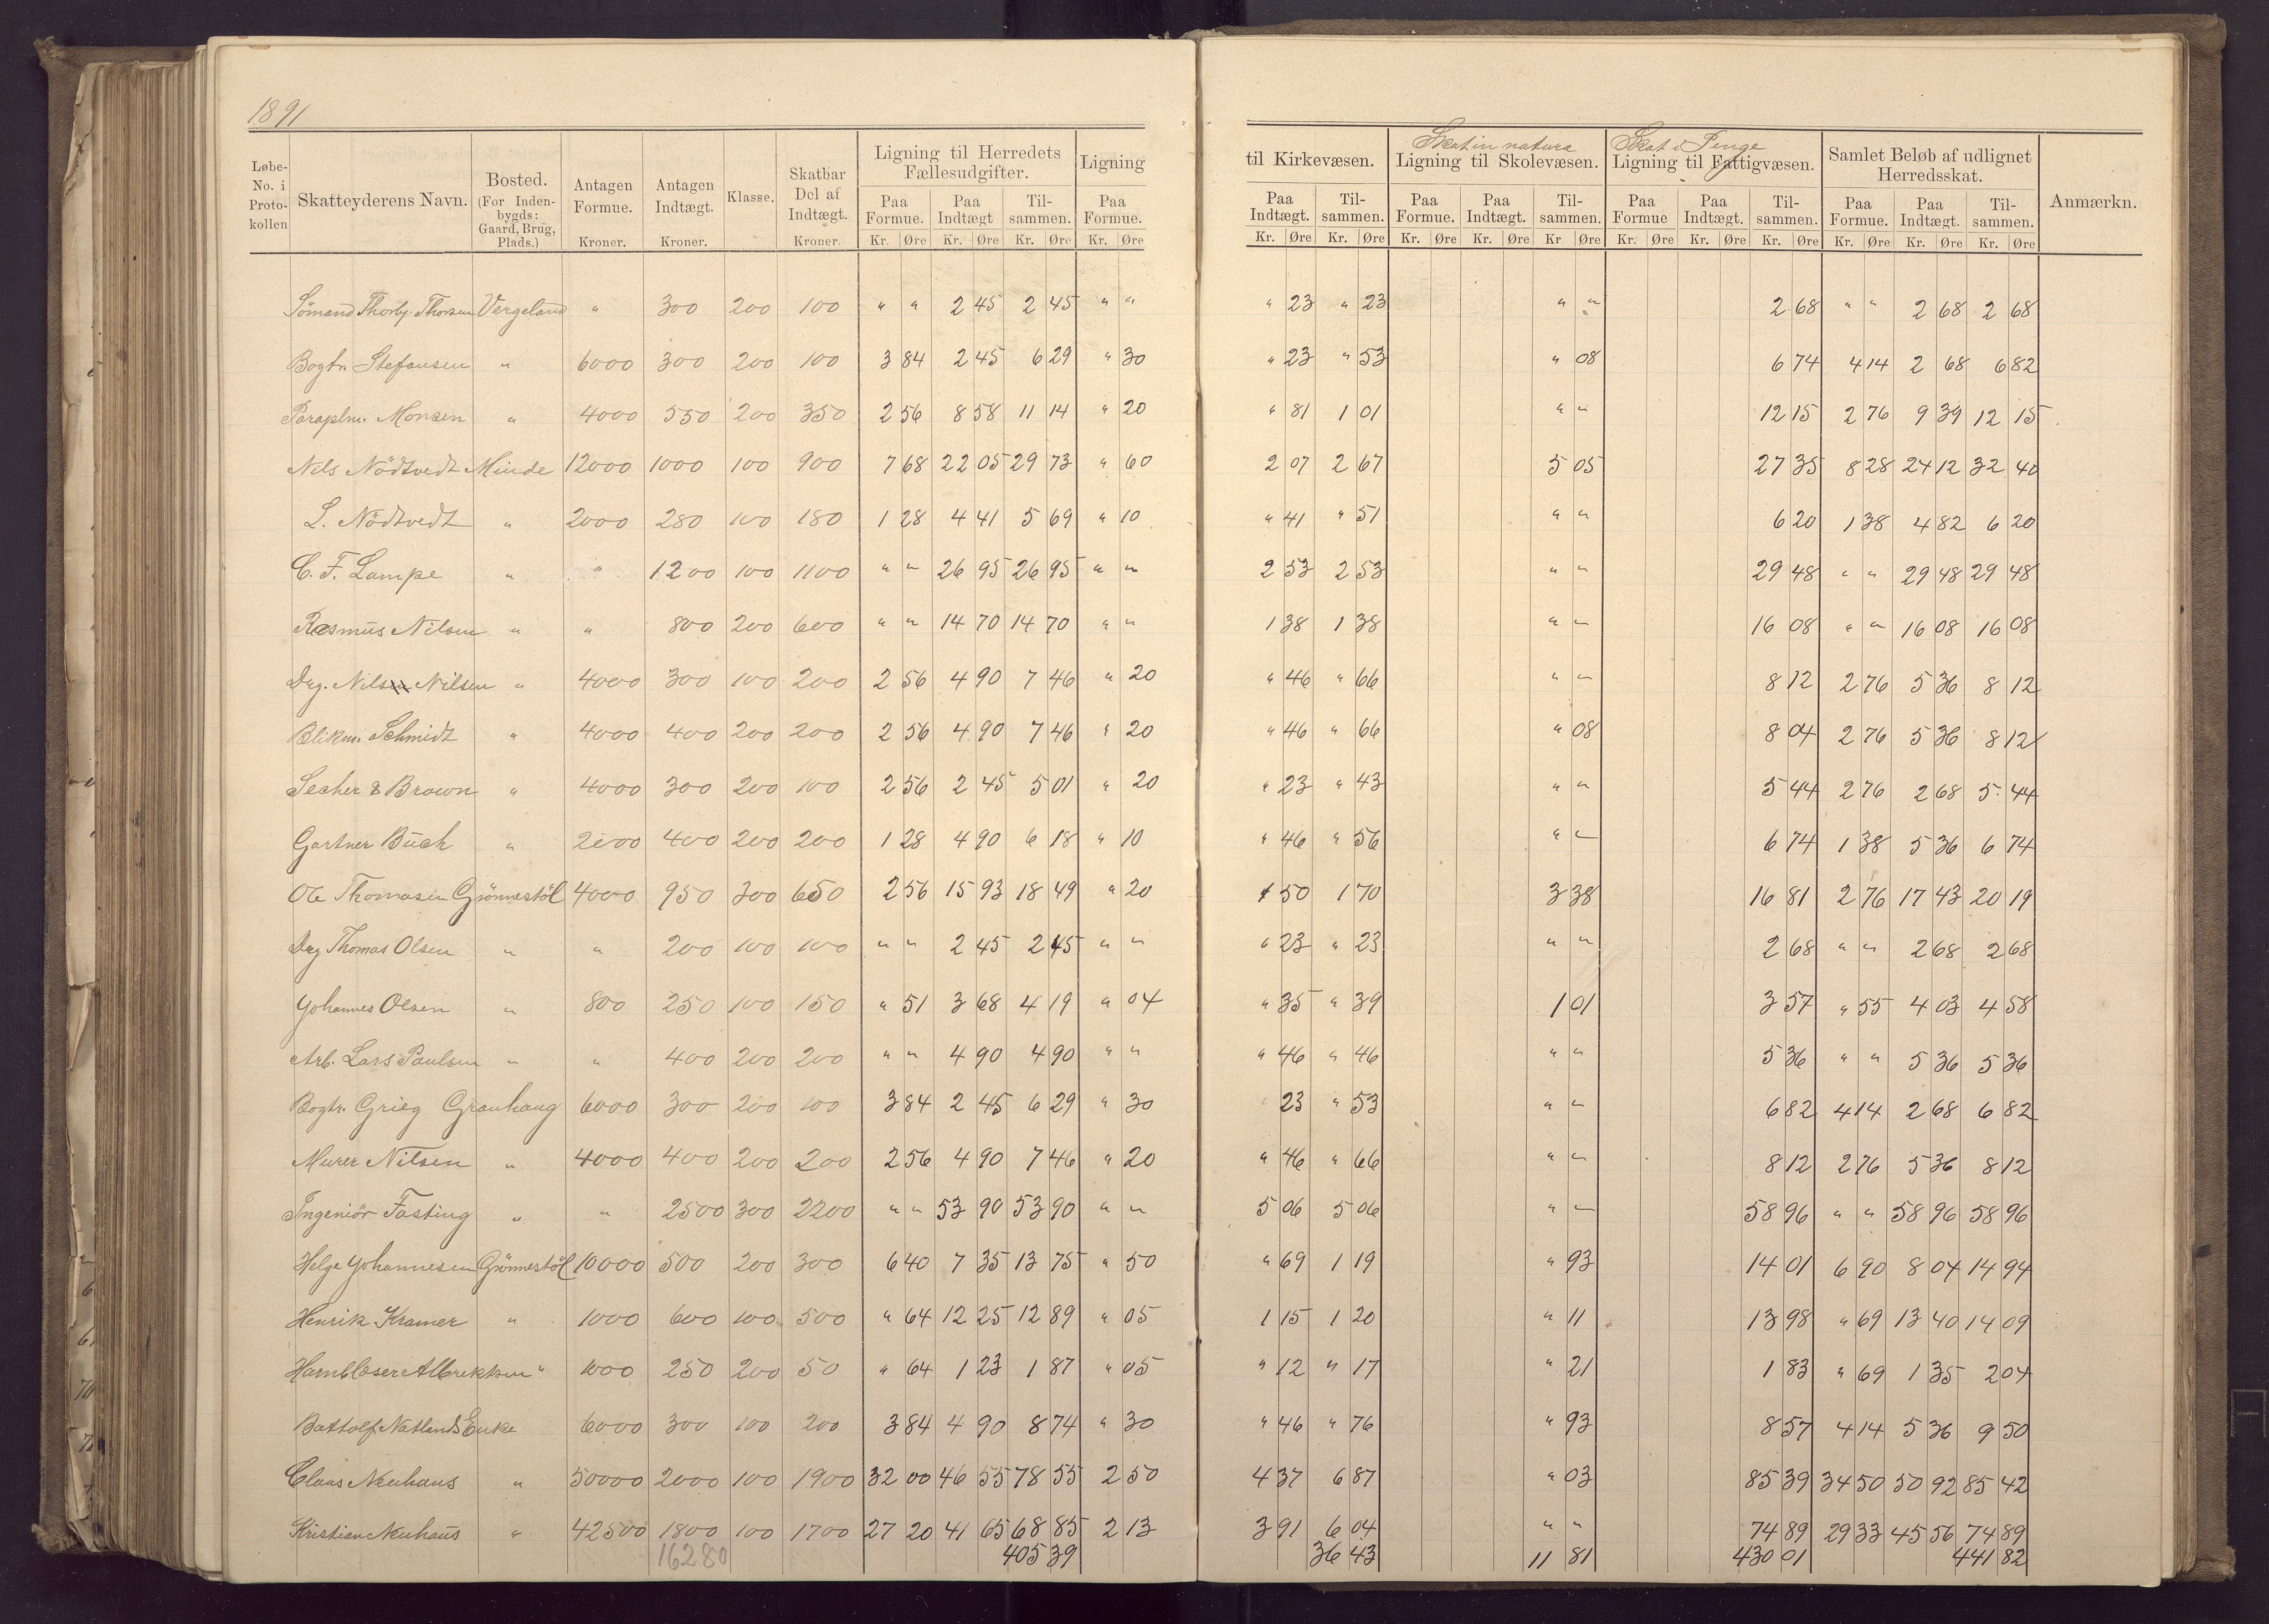 1891
Løbe-No. i Proto-kollen | Skatteyderens Navn. | Bosted. (For Inden-bygds: Gaard, Brug, Plads.) | Antagen Formue. Kroner. | Antagen Indtægt. Kroner. | Klasse. | Skatbar Del af Indtægt. Kroner. | Ligning til Herredets Fællesudgifter. Paa Formue. Kr. Øre | Paa Indtægt Kr. Øre | Til-sammen. Kr. Øre | Ligning Paa Formue. Kr. Øre | til Kirkevæsen. Paa Indtægt. Kr. Øre | Til-sammen. Kr. Øre | Skat in natura Ligning til Skolevæsen. Paa Formue. Kr. Øre | Paa Indtægt. Kr. Øre | Til-sammen. Kr Øre | Skat i Penge Ligning til Fattigvæsen. Paa Formue Kr. Øre | Paa Indtægt. Kr. Øre | Til-sammen. Kr. Øre | Samlet Beløb af udlignet Herredsskat. Paa Formue. Kr. Øre | Paa Indtægt. Kr. Øre | Til-sammen. Kr. Øre | Anmærkn.
Sömand Thorbj. Thorsen Vergeland " 300 200 100 " " 2 45 2 45 " " " 23 " 23 " " 2 68 " " 2 68 2 68
Bogtr. Stefansen " 6000 300 200 100 3 84 2 45 6 29 " 30 " 23 " 53 " 08 6 74 4 14 2 68 6 82
Paraplm. Monsen " 4000 550 200 350 2 56 8 58 11 14 " 20 " 81 1 01 " " 12 15 2 76 9 39 12 15
Nils Nödtvedt Minde 12000 1000 100 900 7 68 22 05 29 73 " 60 2 07 2 67 5 05 27 35 8 28 24 12 32 40
L. Nödtvedt " 2000 280 100 180 1 28 4 41 5 69 " 10 " 41 " 51 " " 6 20 1 38 4 82 6 20
C. F. Lampe " " 1200 100 1100 " " 26 95 26 95 " " 2 53 2 53 " " 29 48 " " 29 48 29 48
Rasmus Nilsen " " 800 200 600 " " 14 70 14 70 " " 1 38 1 38 " " 16 08 " " 16 08 16 08
Dag. Nils Nilsen " 4000 300 100 200 2 56 4 90 7 46 " 20 " 46 " 66 " " 8 12 2 76 5 36 8 12
Blikm. Schmidt " 4000 400 200 200 2 56 4 90 7 46 " 20 " 46 " 66 " 08 8 04 2 76 5 36 8 12
Secher & Brown " 4000 300 200 100 2 56 2 45 5 01 " 20 " 23 " 43 " " 5 44 2 76 2 68 5 44
Gartner Buch " 2000 400 200 200 1 28 4 90 6 18 " 10 " 46 " 56 " " 6 74 1 38 5 36 6 74
Ole Thomasen Grönnestöl 4000 950 300 650 2 56 15 93 18 49 " 20 1 50 1 70 3 38 16 81 2 76 17 43 20 19
Dag Thomas Olsen " " 200 100 100 " " 2 45 2 45 " " " 23 " 23 " " 2 68 " " 2 68 2 68
Johannes Olsen " 800 250 100 150 " 51 3 68 4 19 " 04 " 35 " 39 1 01 3 57 " 55 4 03 4 58
Arb. Lars Paulsen " " 400 200 200 " " 4 90 4 90 " " " 46 " 46 " " 5 36 " " 5 36 5 36
Bogtr. Grieg Grauhaug 6000 300 200 100 3 84 2 45 6 29 " 30 " 23 " 53 " " 6 82 4 14 2 68 6 82
Murer Nilsen " 4000 400 200 200 2 56 4 90 7 46 " 20 " 46 " 66 " " 8 12 2 76 5 36 8 12
Ingeniör Fasting " " 2500 300 2200 " " 53 90 53 90 " " 5 06 5 06 " " 58 96 " " 58 96 58 96
Helge Johannesen Grönnestöl 10000 500 200 300 6 40 7 35 13 75 " 50 " 69 1 19 " 93 14 01 6 90 8 04 14 94
Henrik Kramer " 1000 600 100 500 " 64 12 25 12 89 " 05 1 15 1 20 " 11 13 98 " 69 13 40 14 09
Hornblæser Albrektsen " 1000 250 200 50 " 64 1 23 1 87 " 05 " 12 " 17 " 21 1 83 " 69 1 35 2 04
Battolf Natlands Enke 6000 300 100 200 3 84 4 90 8 74 " 30 " 46 " 76 " 93 8 57 4 14 5 36 9 50
Claus Neuhaus " 50000 2000 100 1900 32 00 46 55 78 55 2 50 4 37 6 87 " 03 85 39 34 50 50 92 85 42
Kristian Neuhaus " 42500 1800 100 1700 27 20 41 65 68 85 2 13 3 91 6 04 " " 74 89 29 33 45 56 74 89
16280 405 39 36 43 11 81 430 01 441 82